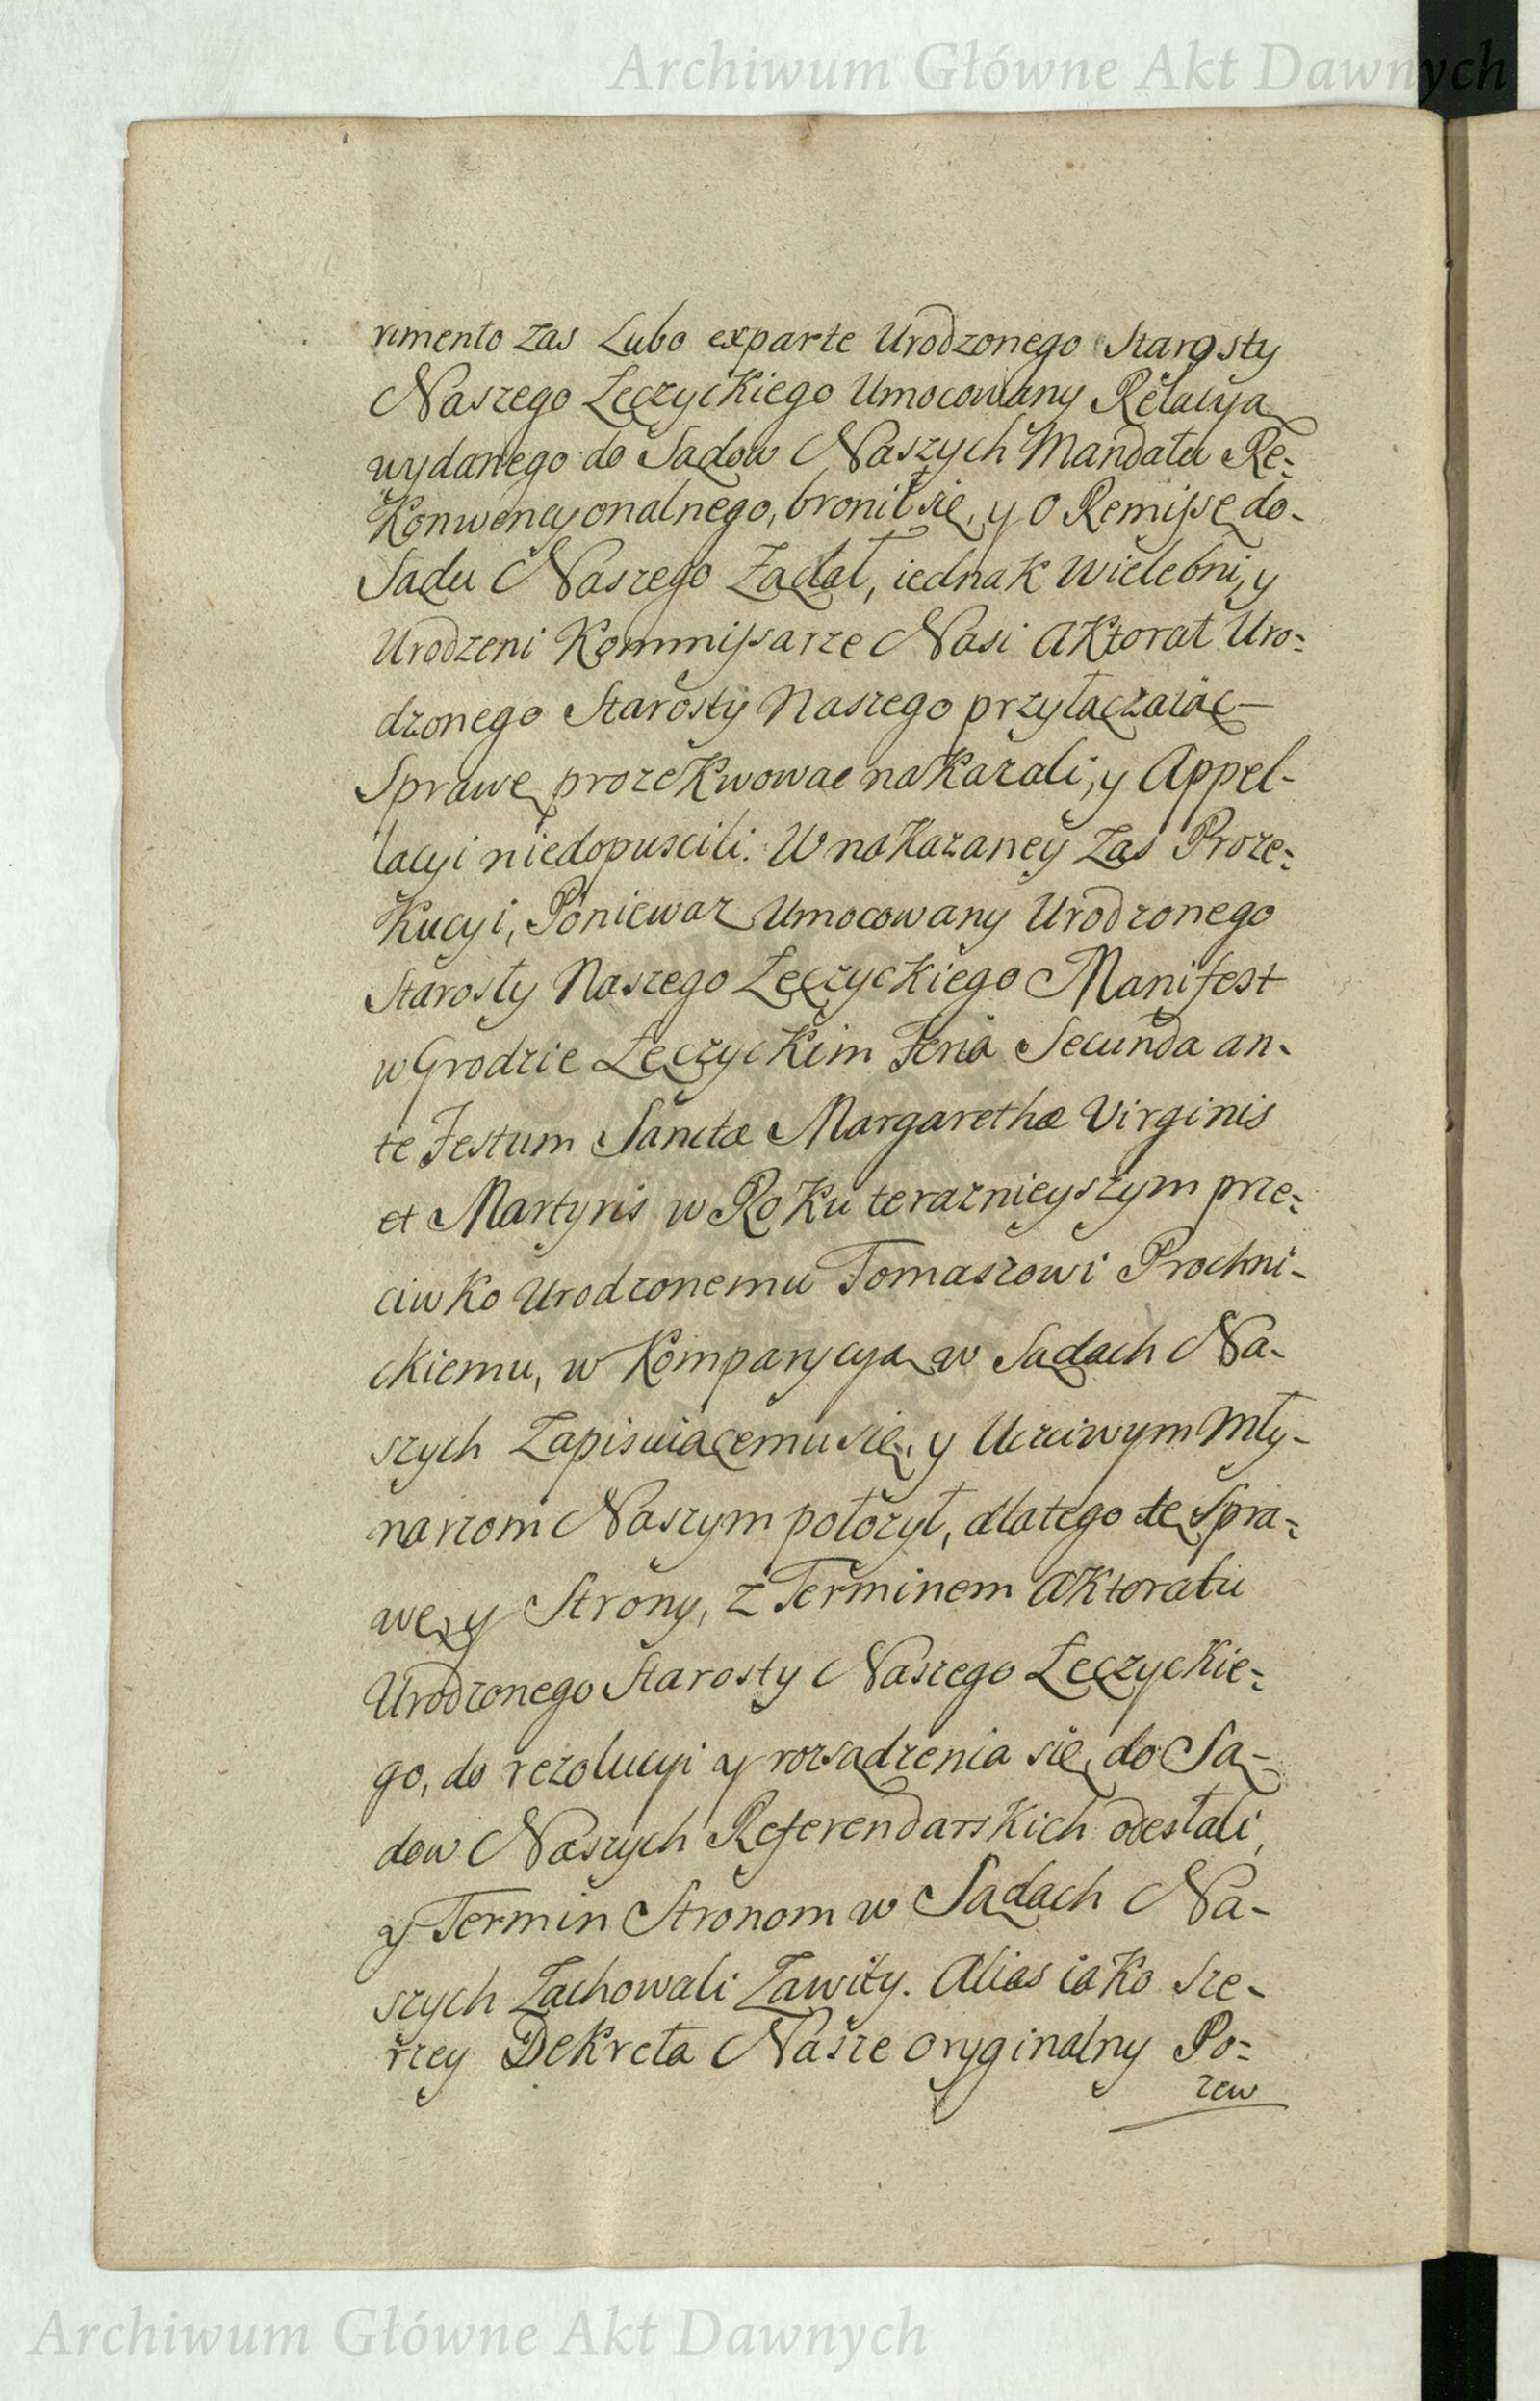 Archiwum Główne Akt Dawnych
rimento zas Lubo exparte Urodzonego Starosty
Naszego Łęczyckiego Umocowany Relacyą
wydanego do Sądow Naszych Mandatu Re=
Konwencyonalnego, bronił się, y o Remissę do-
Sądu Naszego Ządał, iednak Wielebni, y
Urodzeni Kommissarze Nasi Aktorat Uro=
dzonego Starosty Naszego przyłączaiąc—
Sprawę prozekwować nakazali, y Appel-
lacyi niedopuscili. W nakazaney zas Proze=
kucyi, Poniewaz Umocowany Urodzonego
Starosty Naszego Łęczyckiego Manifest
w Grodzie Łęczyckim Feria Secunda an-
te Festum Sanctæ Margarethæ Virginis
et Martyris w Roku teraznieyszym prze=
ciwko Urodzonemu Tomaszowi Prochni-
ckiemu, w Komparycyą w Sądach Na-
szych Zapisuiącemu się, y Uczciwym Mły-
narzom Naszym połozył, dlatego tę Spra=
wę, y Strony, z Terminem Aktoratu
Urodzonego Starosty Naszego Łęczyckie=
go, do rezolucyi y rozsądzenia się, do Są-
dow Naszych Referendarskich odesłali,
y Termin Stronom w Sądach Na-
szych Zachowali Zawity. Alias iako sze-
rzey Dekreta Nasze oryginalny Po=
zew
Archiwum Główne Akt Dawnych